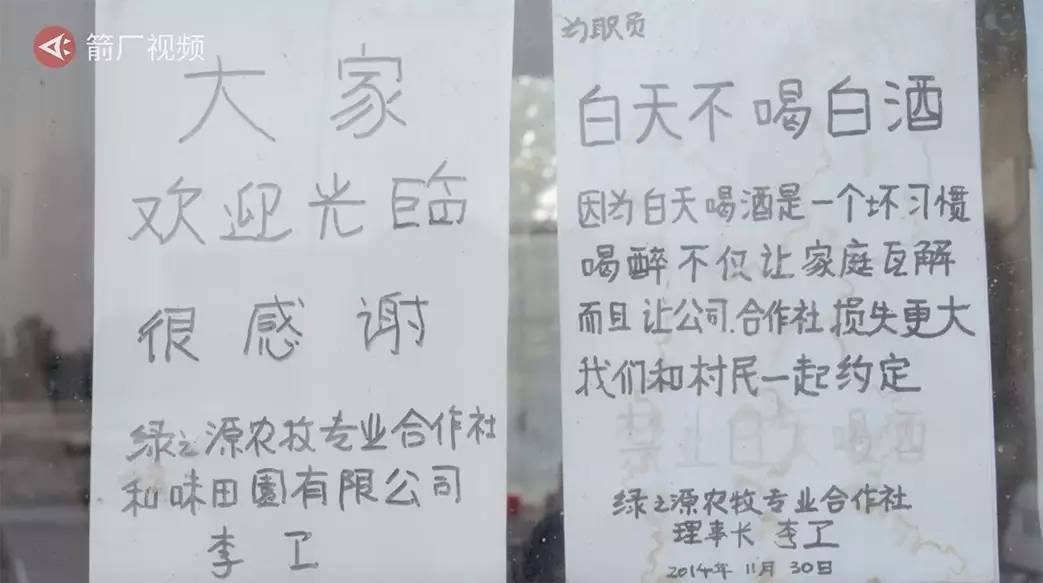 箭厂视频
大家
欢迎光临
很感谢
绿之源农牧专业合作社
和味田園有限公司
李卫
为职员
白天不喝白酒
因为白天喝酒是一个坏习惯
喝醉不仅让家庭瓦解
而且让公司.合作社损失更大
我们和村民一起约定
禁止白天喝酒
绿之源农牧专业合作社
理事长 李卫
2014年 11月 30日